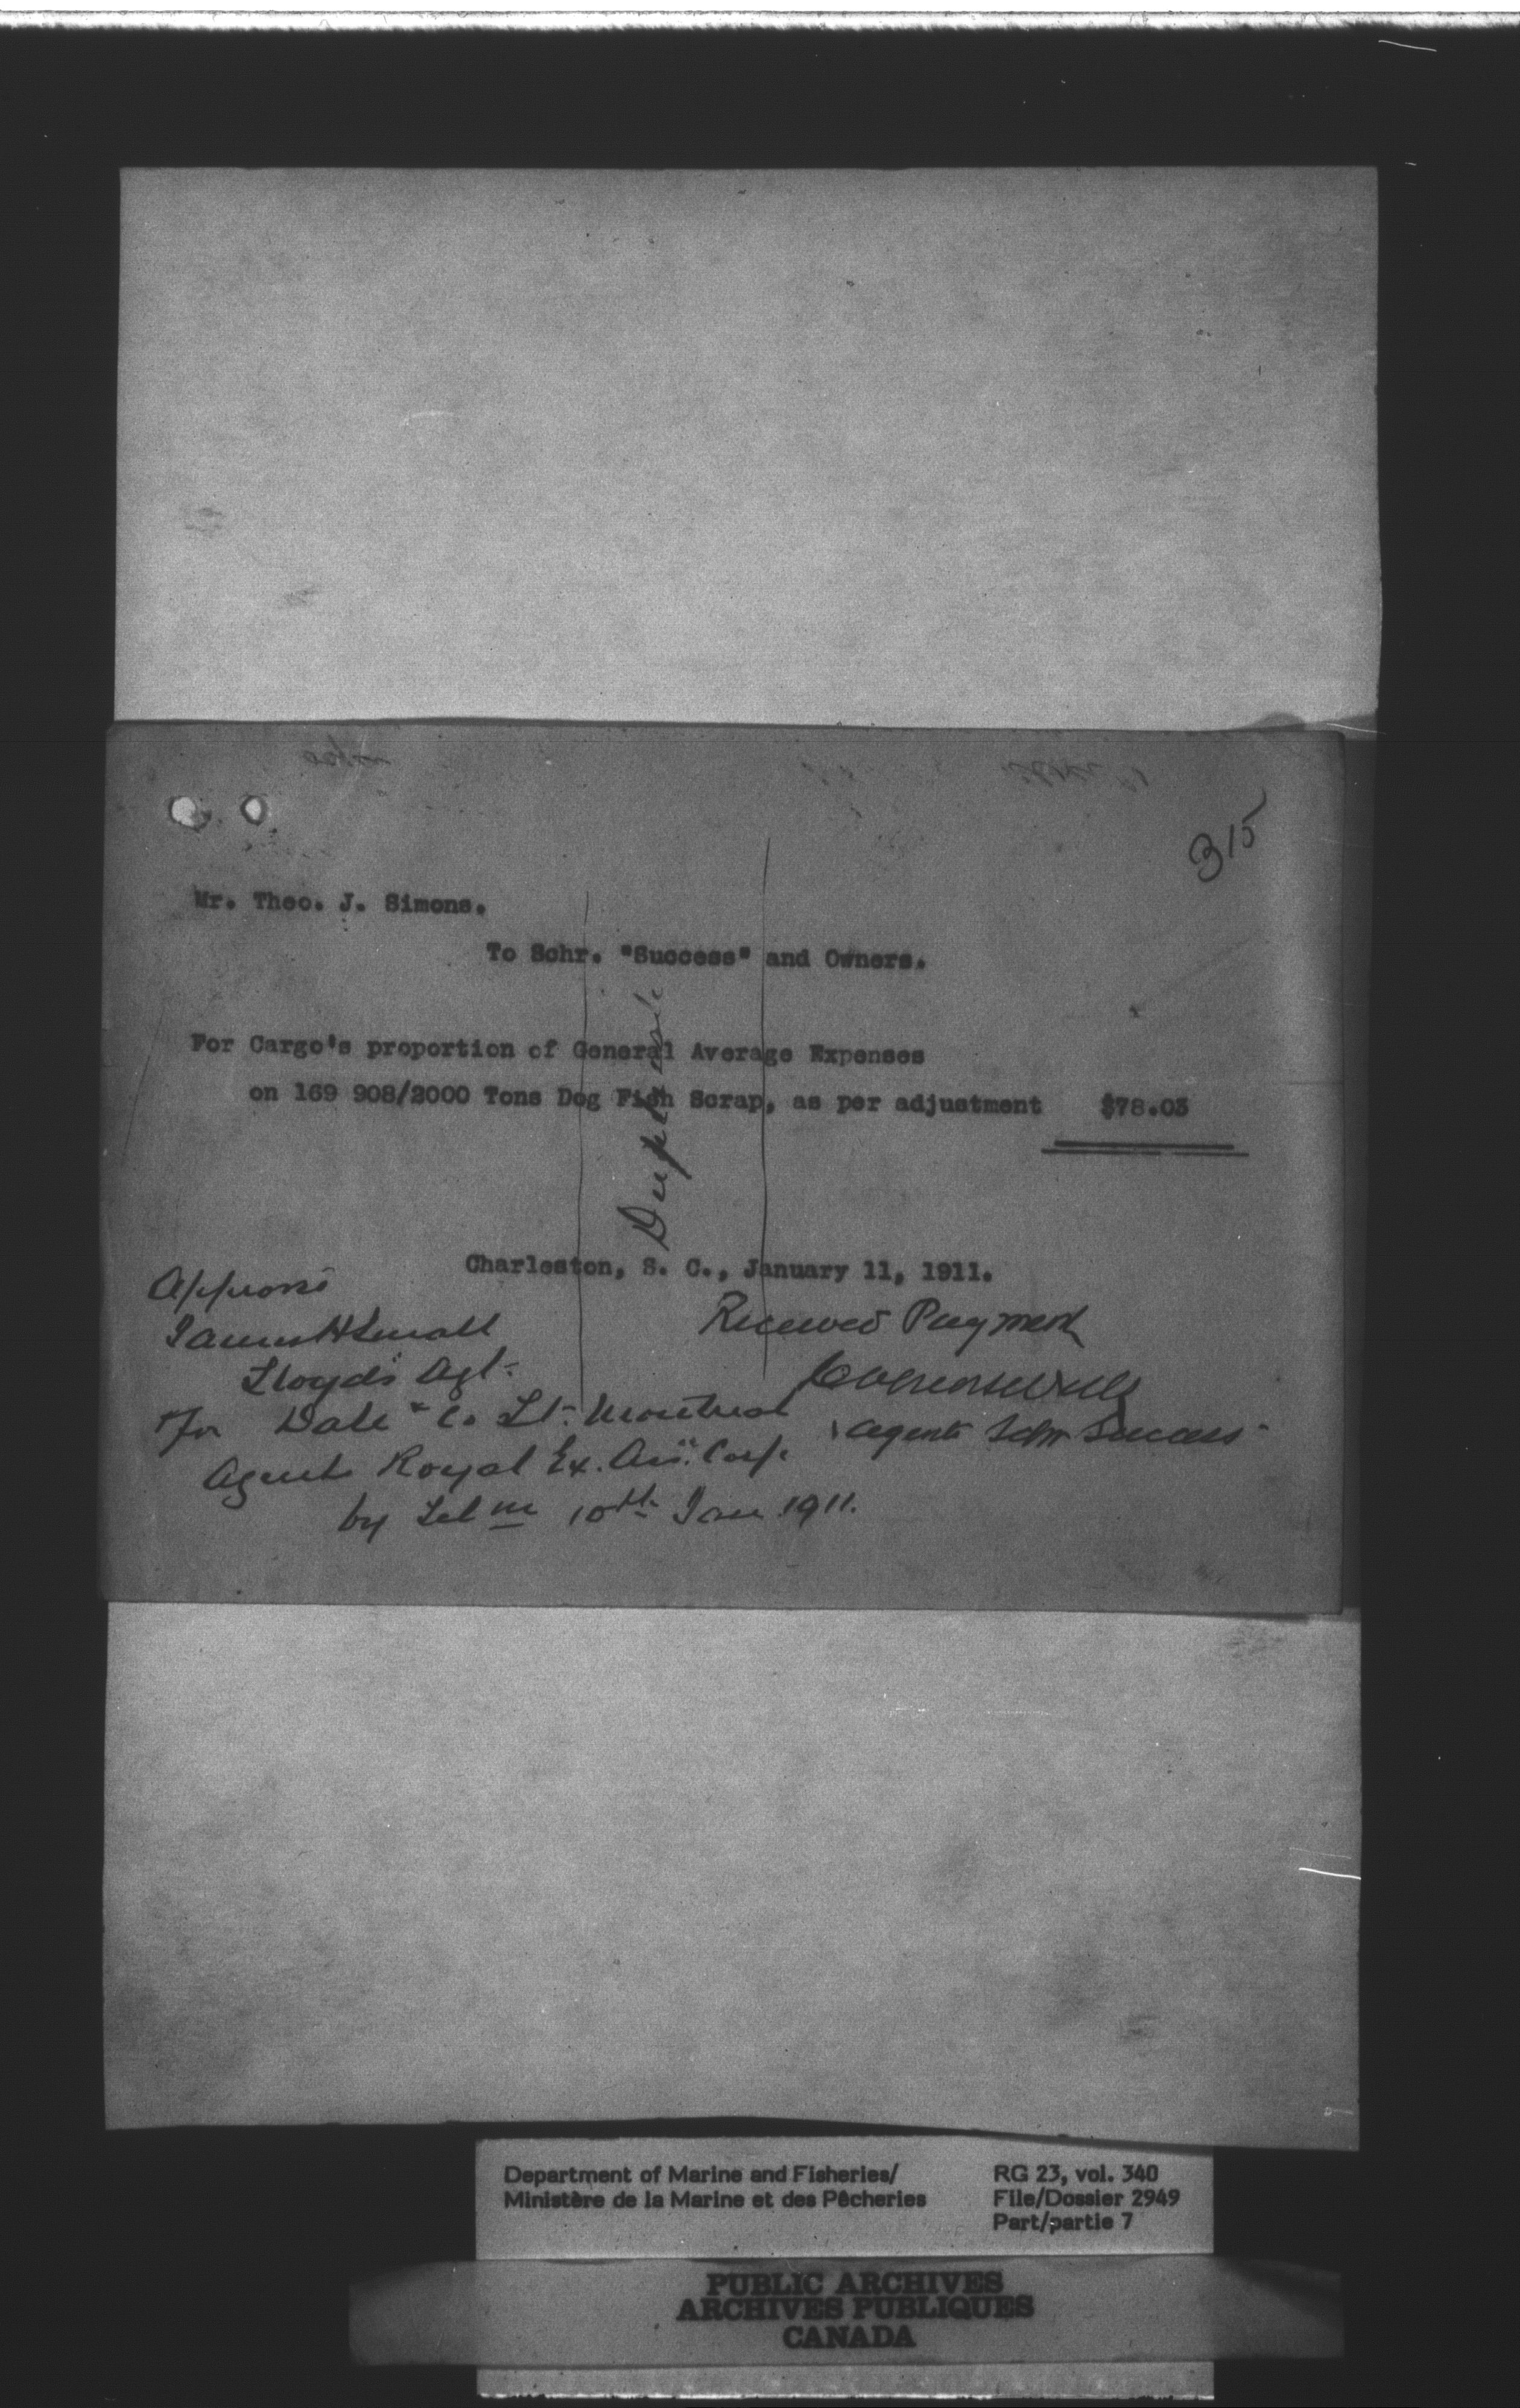 315
Mr. Theo. J. Simons.
To Schr. "Success" and Owners.
For Cargo's proportion of General Average Expenses
on 169 908/2000 Tons Dog Fish Scrap, as per adjustment $78.03
Duplicate
Charleston, S. C., January 11, 1911.
Received Payment
Agents Schr Success
James H Small
Lloyd's Agt.
For Dale & Co Lt. Montreal
Agents Royal Ex. Ass. Corp.
by Tel m 10th Jan 1911.
Department of Marine and Fisheries/
Ministère de la Marine et des Pêcheries
RG 23, vol. 340
File/Dossier 2949
Part/partie 7
PUBLIC ARCHIVES
ARCHIVES PUBLIQUES
CANADA